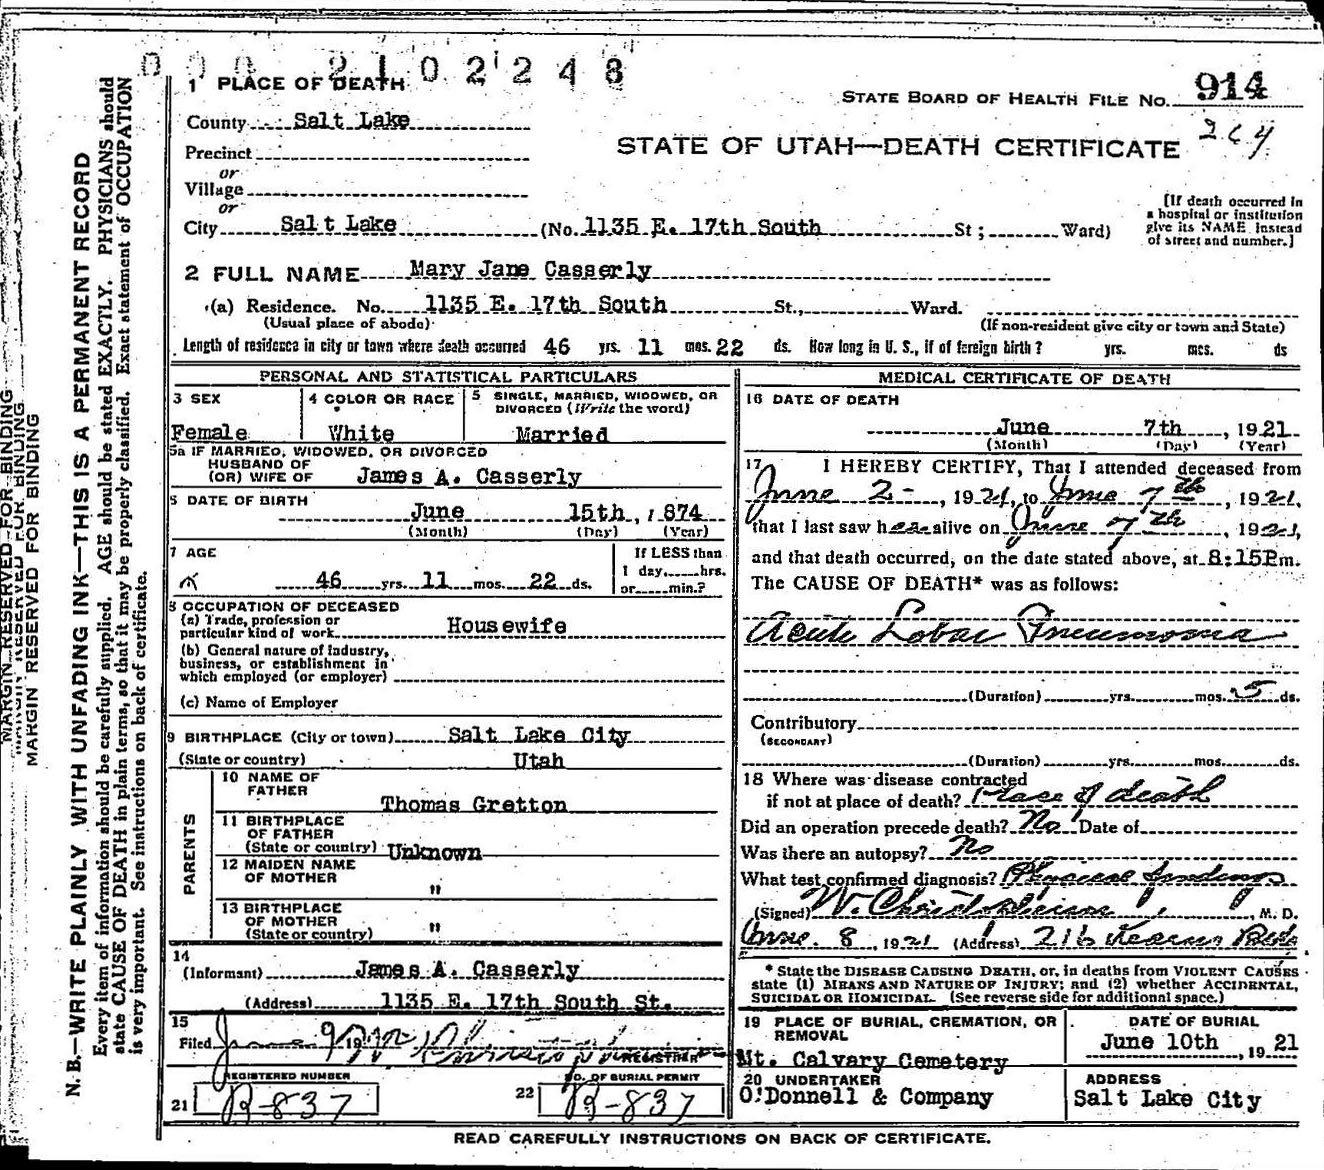 0002102248
1 PLACE OF DEATH
STATE BOARD OF HEALTH FILE No. 914
264
County Salt Lake
STATE OF UTAH—DEATH CERTIFICATE
Precinct
or
Village
or
City Salt Lake (No. 1135 E. 17th South St; Ward)
[If death occurred in
a hospital or institution
give its NAME instead
of street and number.]
2 FULL NAME Mary Jane Casserly
(a) Residence. No. 1135 E. 17th South St., Ward.
(Usual place of abode) (If non-resident give city or town and State)
Length of residence in city or town where death occurred 46 yrs. 11 mos. 22 ds. How long in U. S., if of foreign birth? yrs. mos. ds
PERSONAL AND STATISTICAL PARTICULARS
3 SEX
Female
4 COLOR OR RACE
White
5 SINGLE, MARRIED, WIDOWED, OR
DIVORCED (Write the word)
Married
5a IF MARRIED, WIDOWED, OR DIVORCED
HUSBAND OF
(OR) WIFE OF James A. Casserly
6 DATE OF BIRTH
June 15th, 1874
(Month) (Day) (Year)
7 AGE
46 yrs. 11 mos. 22 ds.
If LESS than
1 day, hrs.
or min.?
8 OCCUPATION OF DECEASED
(a) Trade, profession or
particular kind of work Housewife
(b) General nature of Industry,
business, or establishment in
which employed (or employer)
(c) Name of Employer
9 BIRTHPLACE (City or town) Salt Lake City
(State or country) Utah
PARENTS
10 NAME OF
FATHER
Thomas Gretton
11 BIRTHPLACE
OF FATHER
(State or country) Unknown
12 MAIDEN NAME
OF MOTHER "
13 BIRTHPLACE
OF MOTHER
(State or country) "
14
(Informant) James A. Casserly
(Address) 1135 E. 17th South St.
15
Filed June 9 19
REGISTRAR
REGISTERED NUMBER
21 B-837
NO. OF BURIAL PERMIT
22 B-837
MEDICAL CERTIFICATE OF DEATH
16 DATE OF DEATH
June 7th, 1921
(Month) (Day) (Year)
17 I HEREBY CERTIFY, That I attended deceased from
June 2-, 1921, to June 7th, 1921,
that I last saw her alive on June 7th, 1921,
and that death occurred, on the date stated above, at 8:15Pm.
The CAUSE OF DEATH* was as follows:
Acute Lobar Pneumonia
(Duration) yrs. mos. 5 ds.
Contributory
(SECONDARY)
(Duration) yrs. mos. ds.
18 Where was disease contracted
if not at place of death? Place of death
Did an operation precede death? No Date of
Was there an autopsy? No
What test confirmed diagnosis? Physical findings
(Signed) W. Christopherson, M. D.
June 8, 1921 (Address) 216 Kearns Bldg
* State the DISEASE CAUSING DEATH, or, in deaths from VIOLENT CAUSES
state (1) MEANS AND NATURE OF INJURY; and (2) whether ACCIDENTAL,
SUICIDAL OR HOMICIDAL. (See reverse side for additional space.)
19 PLACE OF BURIAL, CREMATION, OR
REMOVAL
Mt. Calvary Cemetery
DATE OF BURIAL
June 10th, 1921
20 UNDERTAKER
O'Donnell & Company
ADDRESS
Salt Lake City
READ CAREFULLY INSTRUCTIONS ON BACK OF CERTIFICATE.
MARGIN RESERVED FOR BINDING
MARGIN RESERVED FOR BINDING
N. B.—WRITE PLAINLY WITH UNFADING INK—THIS IS A PERMANENT RECORD
Every item of information should be carefully supplied. AGE should be stated EXACTLY. PHYSICIANS should
state CAUSE OF DEATH in plain terms, so that it may be properly classified. Exact statement of OCCUPATION
is very important. See instructions on back of certificate.